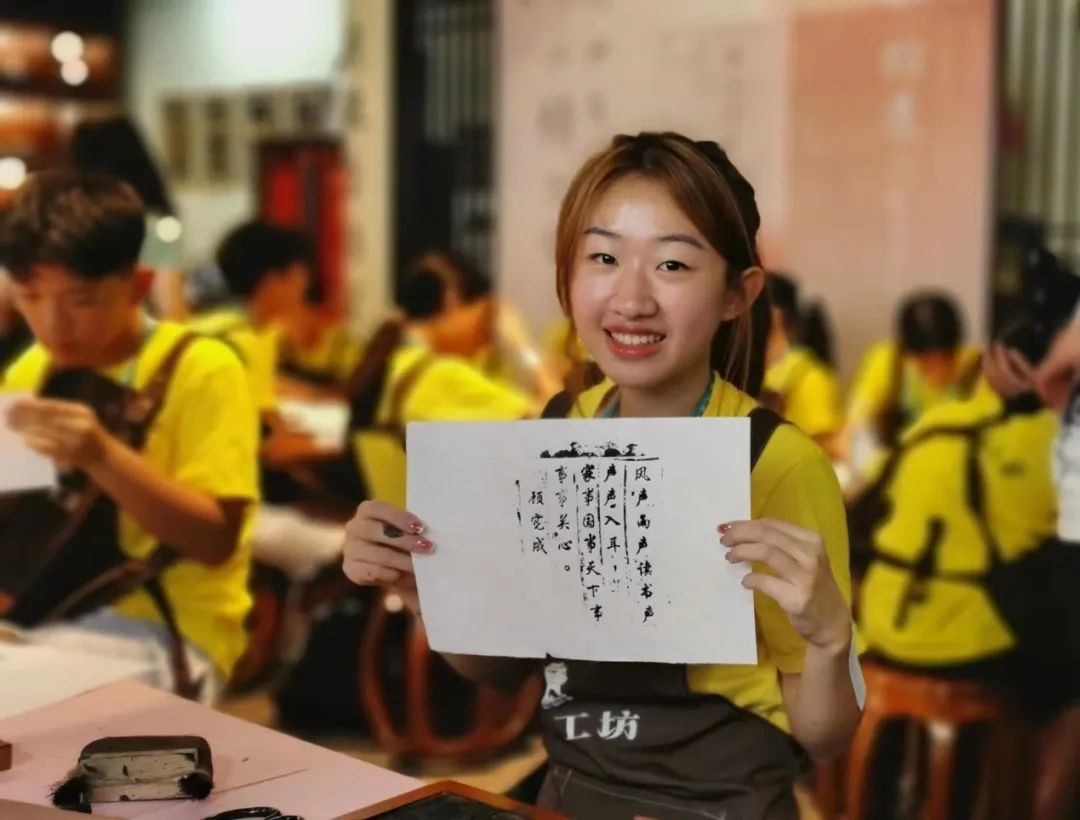 风声雨声读书声
声声入耳，
家事国事天下事
事事关心。
顾宪成
工坊